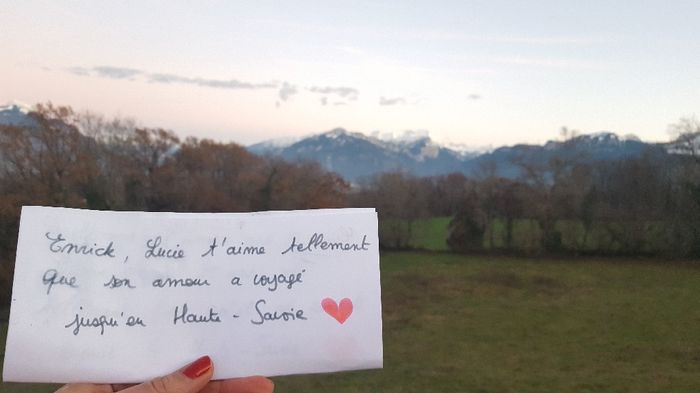 Enrick, Lucie t'aime tellement
que son amour a voyagé
jusqu'en Haute-Savoie